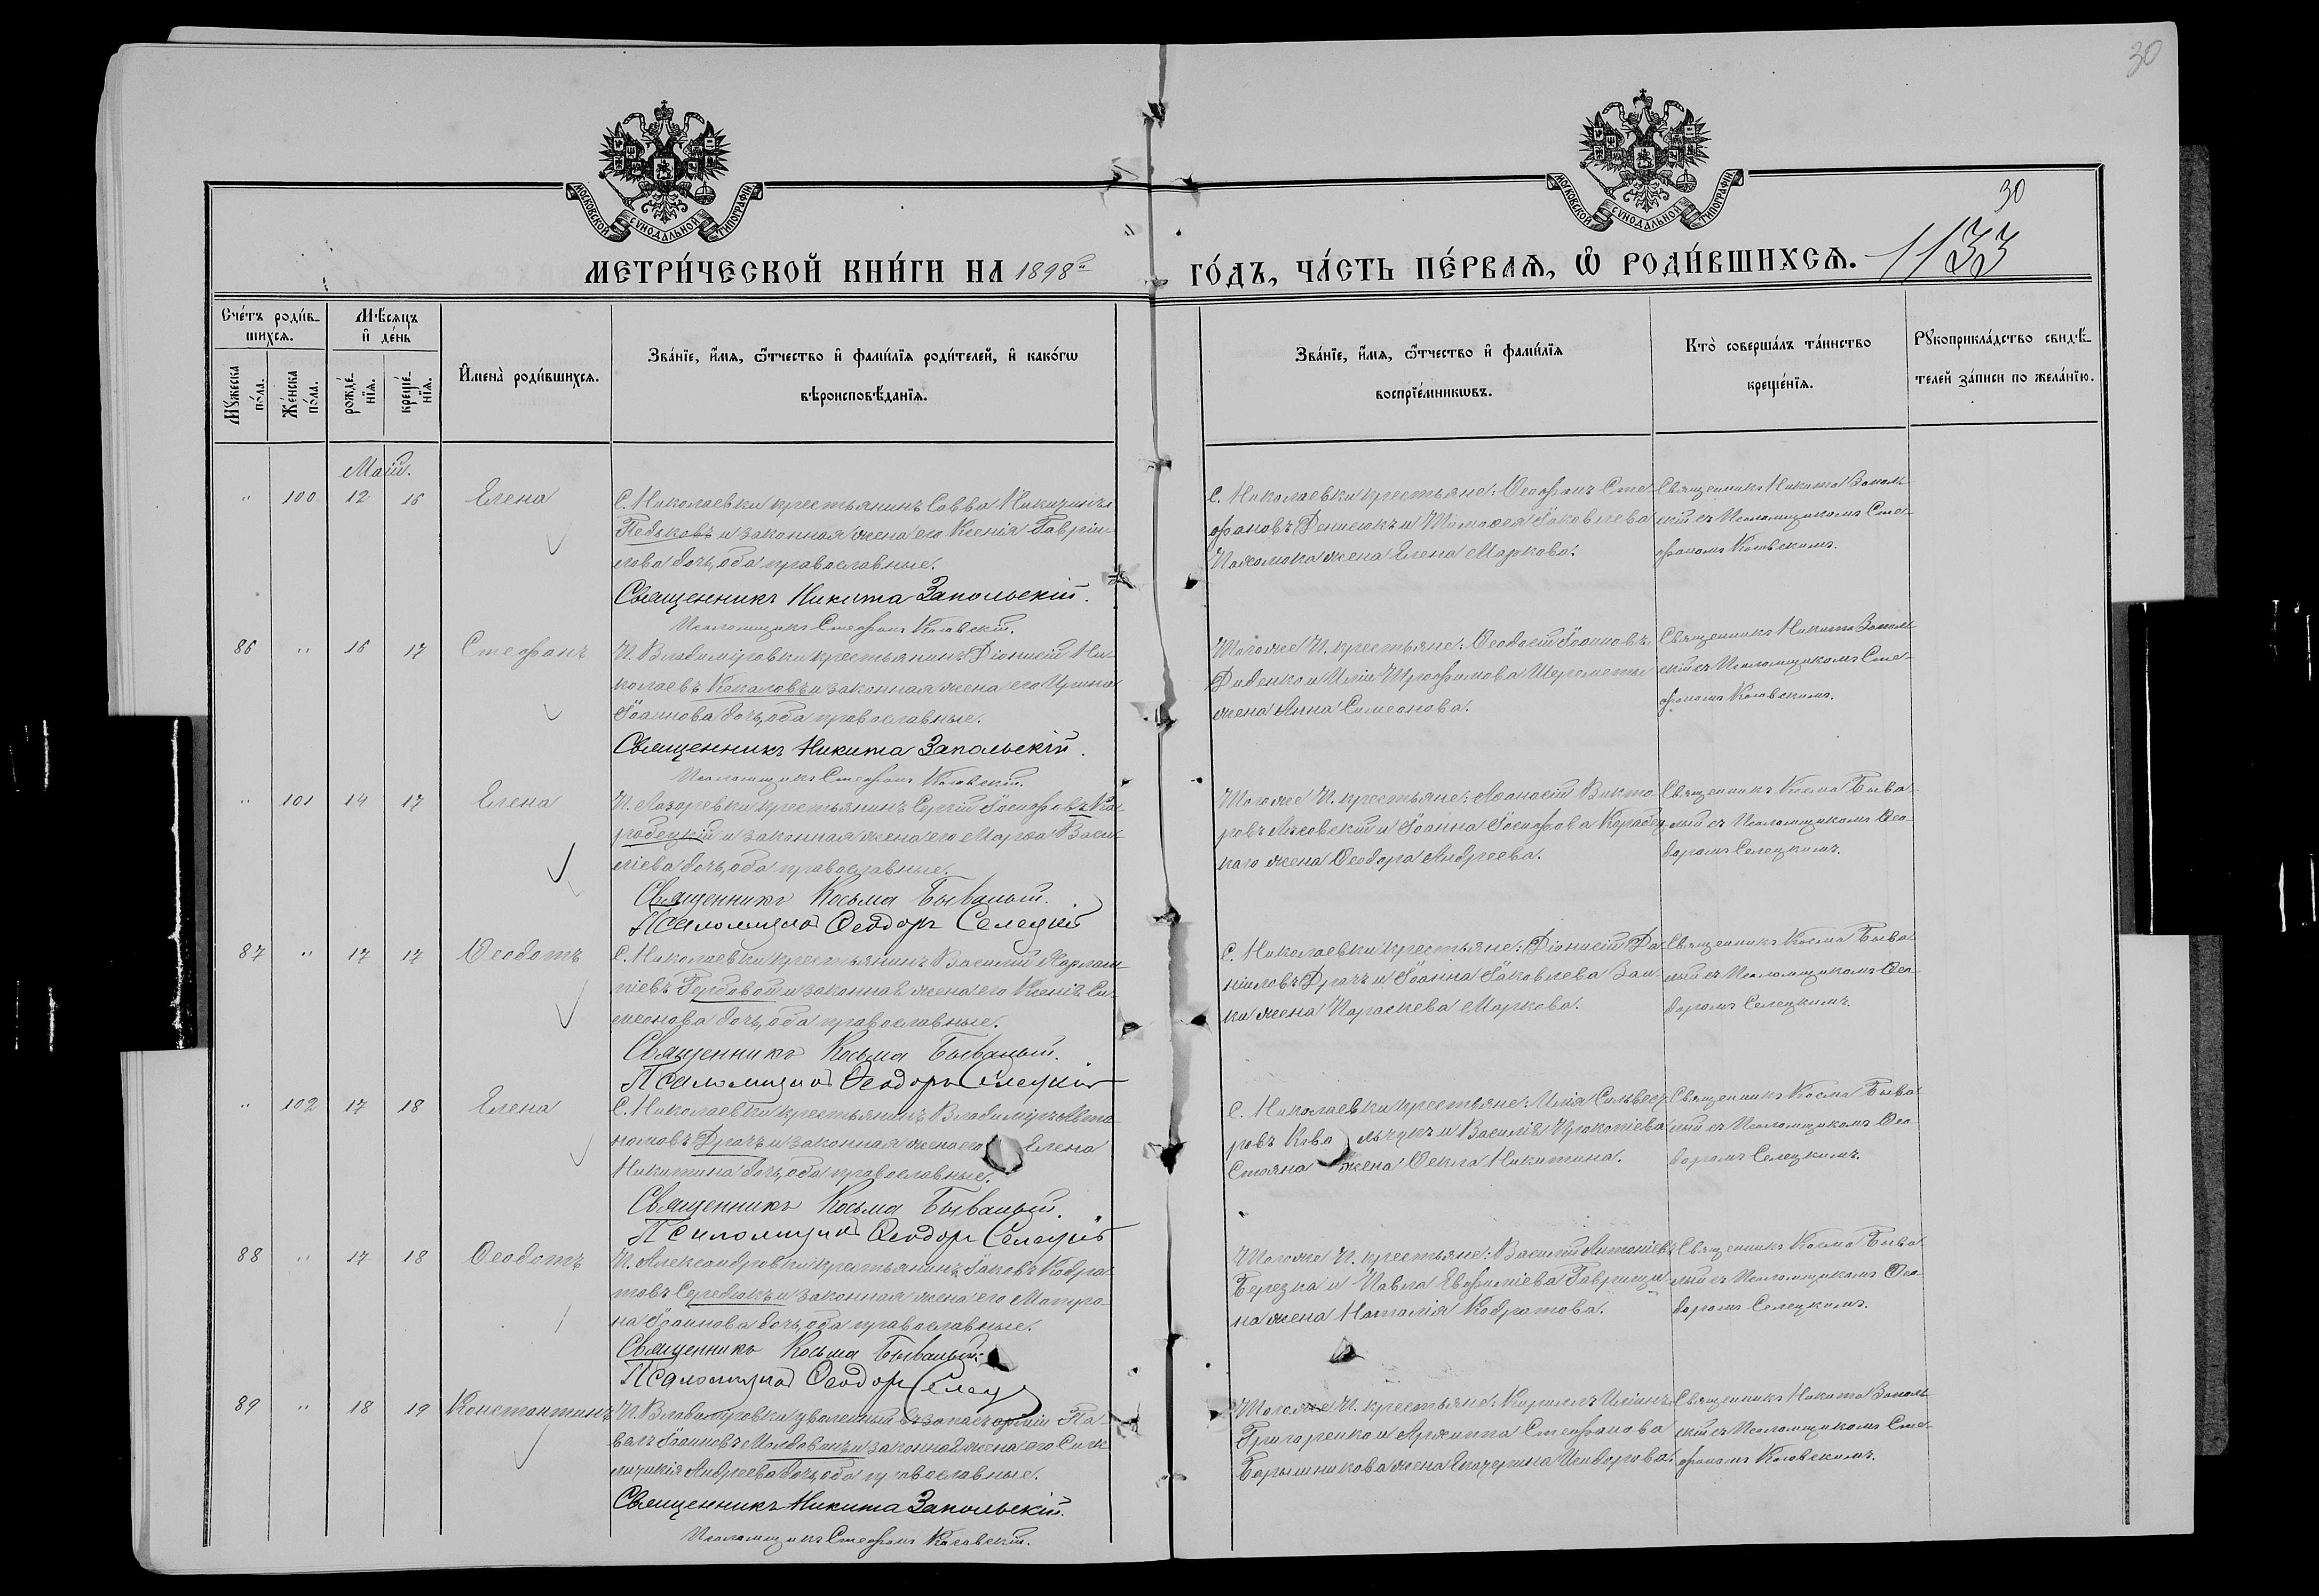 30
30
МОСКОВСКОЙ СѴНОДАЛЬНОЙ ТИПОГРАФІИ
МОСКОВСКОЙ СѴНОДАЛЬНОЙ ТИПОГРАФІИ
МЕТРИ́ЧЕСКОЙ КНИ́ГИ НА 1898й
ГО́ДЪ, ЧА́СТЬ ПЕ́РВАЯ, Ѡ РОДИ́ВШИХСЯ. 1133
Сче́тъ роди́в-
шихся.
Мѣ́сяцъ
и де́нь
Му́жеска по́ла.
Же́нска по́ла.
рожде́нїя.
креще́нїя.
Имена̀ роди́вшихся.
Зва́нїе, и́мя, ѻ҆́тчество и фами́лїя роди́телей, и како́гѡ
вѣроисповѣ́данїя.
Зва́нїе, и́мя, ѻ҆́тчество и фами́лїя
воспрїе́мникѡвъ.
Кто̀ соверша́лъ та́инство
креще́нїя.
Рꙋкоприкла́дство свидѣ́-
телей за́писи по жела́нїю.
Май.
" 100 12 16 Елена
С. Николаевки крестьянинъ Савва Никитинъ
Педьковъ и законная жена его Ксенія Гаврии-
лова дочь, оба православные.
Священникъ Никита Запольскій.
Псаломщикъ Стефанъ Косовскій.
С. Николаевки крестьяне: Ѳеофанъ Сте-
фановъ Денисюкъ и Тимоѳея Іаковлева
жена Елена Маркова.
Священникъ Никита Заполь-
скій съ Псаломщикомъ Сте-
фаномъ Косовскимъ.
86 " 16 17 Стефанъ
П. Владиміровки крестьянинъ Діонисій Ни-
колаевъ Кекаловъ и законная жена его Ирина
Іоаннова дочь, оба православные.
Священникъ Никита Запольскій.
Псаломщикъ Стефанъ Косовскій.
Тогоже П. крестьяне: Ѳеодосій Іоанновъ
Диденко и Иліи Трофимова Шереметы
жена Анна Симеонова.
Священникъ Никита Заполь-
скій съ Псаломщикомъ Сте-
фаномъ Косовскимъ.
" 101 14 17 Елена
П. Лазаревки крестьянинъ Сергій Іосифовъ Ка-
робецкій и законная жена его Марѳа Васи-
ліева дочь, оба православные.
Священникъ Косьма Бывалый.
Псаломщикъ Ѳеодоръ Селецкій
Тогоже П. крестьяне: Аѳанасій Викто-
ровъ Лисовский и Іоанна Іосифова Карабец-
каго жена Ѳеодора Андреева.
Священникъ Косма Быва-
лый съ Псаломщикомъ Ѳео-
доромъ Селецкимъ.
87 " 17 17 Ѳеодотъ
С. Николаевки крестьянинъ Василій Харлам-
піевъ Гербовой и законная жена его Ксенія Си-
меонова дочь, оба православные.
Священникъ Косьма Бывалый.
Псаломщикъ Ѳеодоръ Селецкій
С. Николаевки крестьяне: Діонисій Да-
ніиловъ Драчъ и Іоанна Іаковлева Заи-
ки жена Параскева Маркова.
Священникъ Косма Быва-
лый съ Псаломщикомъ Ѳео-
доромъ Селецкимъ.
" 102 17 18 Елена
С. Николаевки крестьянинъ Владиміръ Авто-
номовъ Драчъ и законная жена его Елена
Никитина дочь, оба православные.
Священникъ Косьма Бывалый.
Псаломщикъ Ѳеодоръ Селецкій
С. Николаевки крестьяне: Илія Сильвест-
ровъ Ковальчукъ и Василія Прокопіева
Стояна жена Ѳекла Никитина.
Священникъ Косма Быва-
лый съ Псаломщикомъ Ѳео-
доромъ Селецкимъ.
88 " 17 18 Ѳеодотъ
П. Александровки крестьянинъ Іаковъ Кодра-
товъ Середюкъ и законная жена его Матро-
на Іоаннова дочь, оба православные.
Священникъ Косьма Бывалый.
Псаломщикъ Ѳеодоръ Селец
Тогоже П. крестьяне: Василій Антоніевъ
Березка и Павла Евфиміева Гаврищи-
на жена Наталія Кодратова.
Священникъ Косма Быва-
лый съ Псаломщикомъ Ѳео-
доромъ Селецкимъ.
89 " 18 19 Константинъ
П. Владиміровки уволенный въ запасъ арміи Па-
велъ Іоанновъ Молдованъ и законная жена его Синк-
литикія Андреева дочь, оба православные.
Священникъ Никита Запольскій.
Псаломщикъ Стефанъ Косовскій.
Тогоже П. крестьяне: Кириллъ Иліинъ
Григоренко и Архиппа Стефанова
Барышникова жена Екатерина Исидорова.
Священникъ Никита Заполь-
скій съ Псаломщикомъ Сте-
фаномъ Косовскимъ.